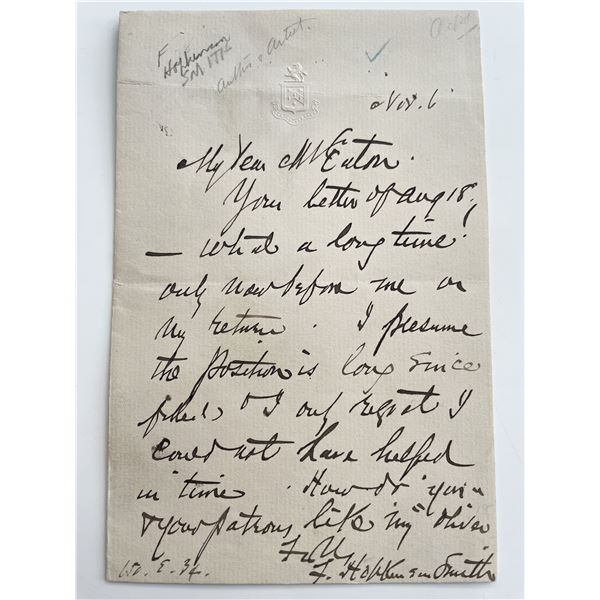 F
Hopkinson
Smith
Author & Artist.
Nov. 6
My Dear Mr Eaton.
Your letter of Aug 18,
— what a long time!
only now before me on
my return. I presume
the position is long since
filled & I only regret I
could not have helped
in time. How do you
& your patrons like my Oliver
F. Hopkinson Smith
150. E. 34.